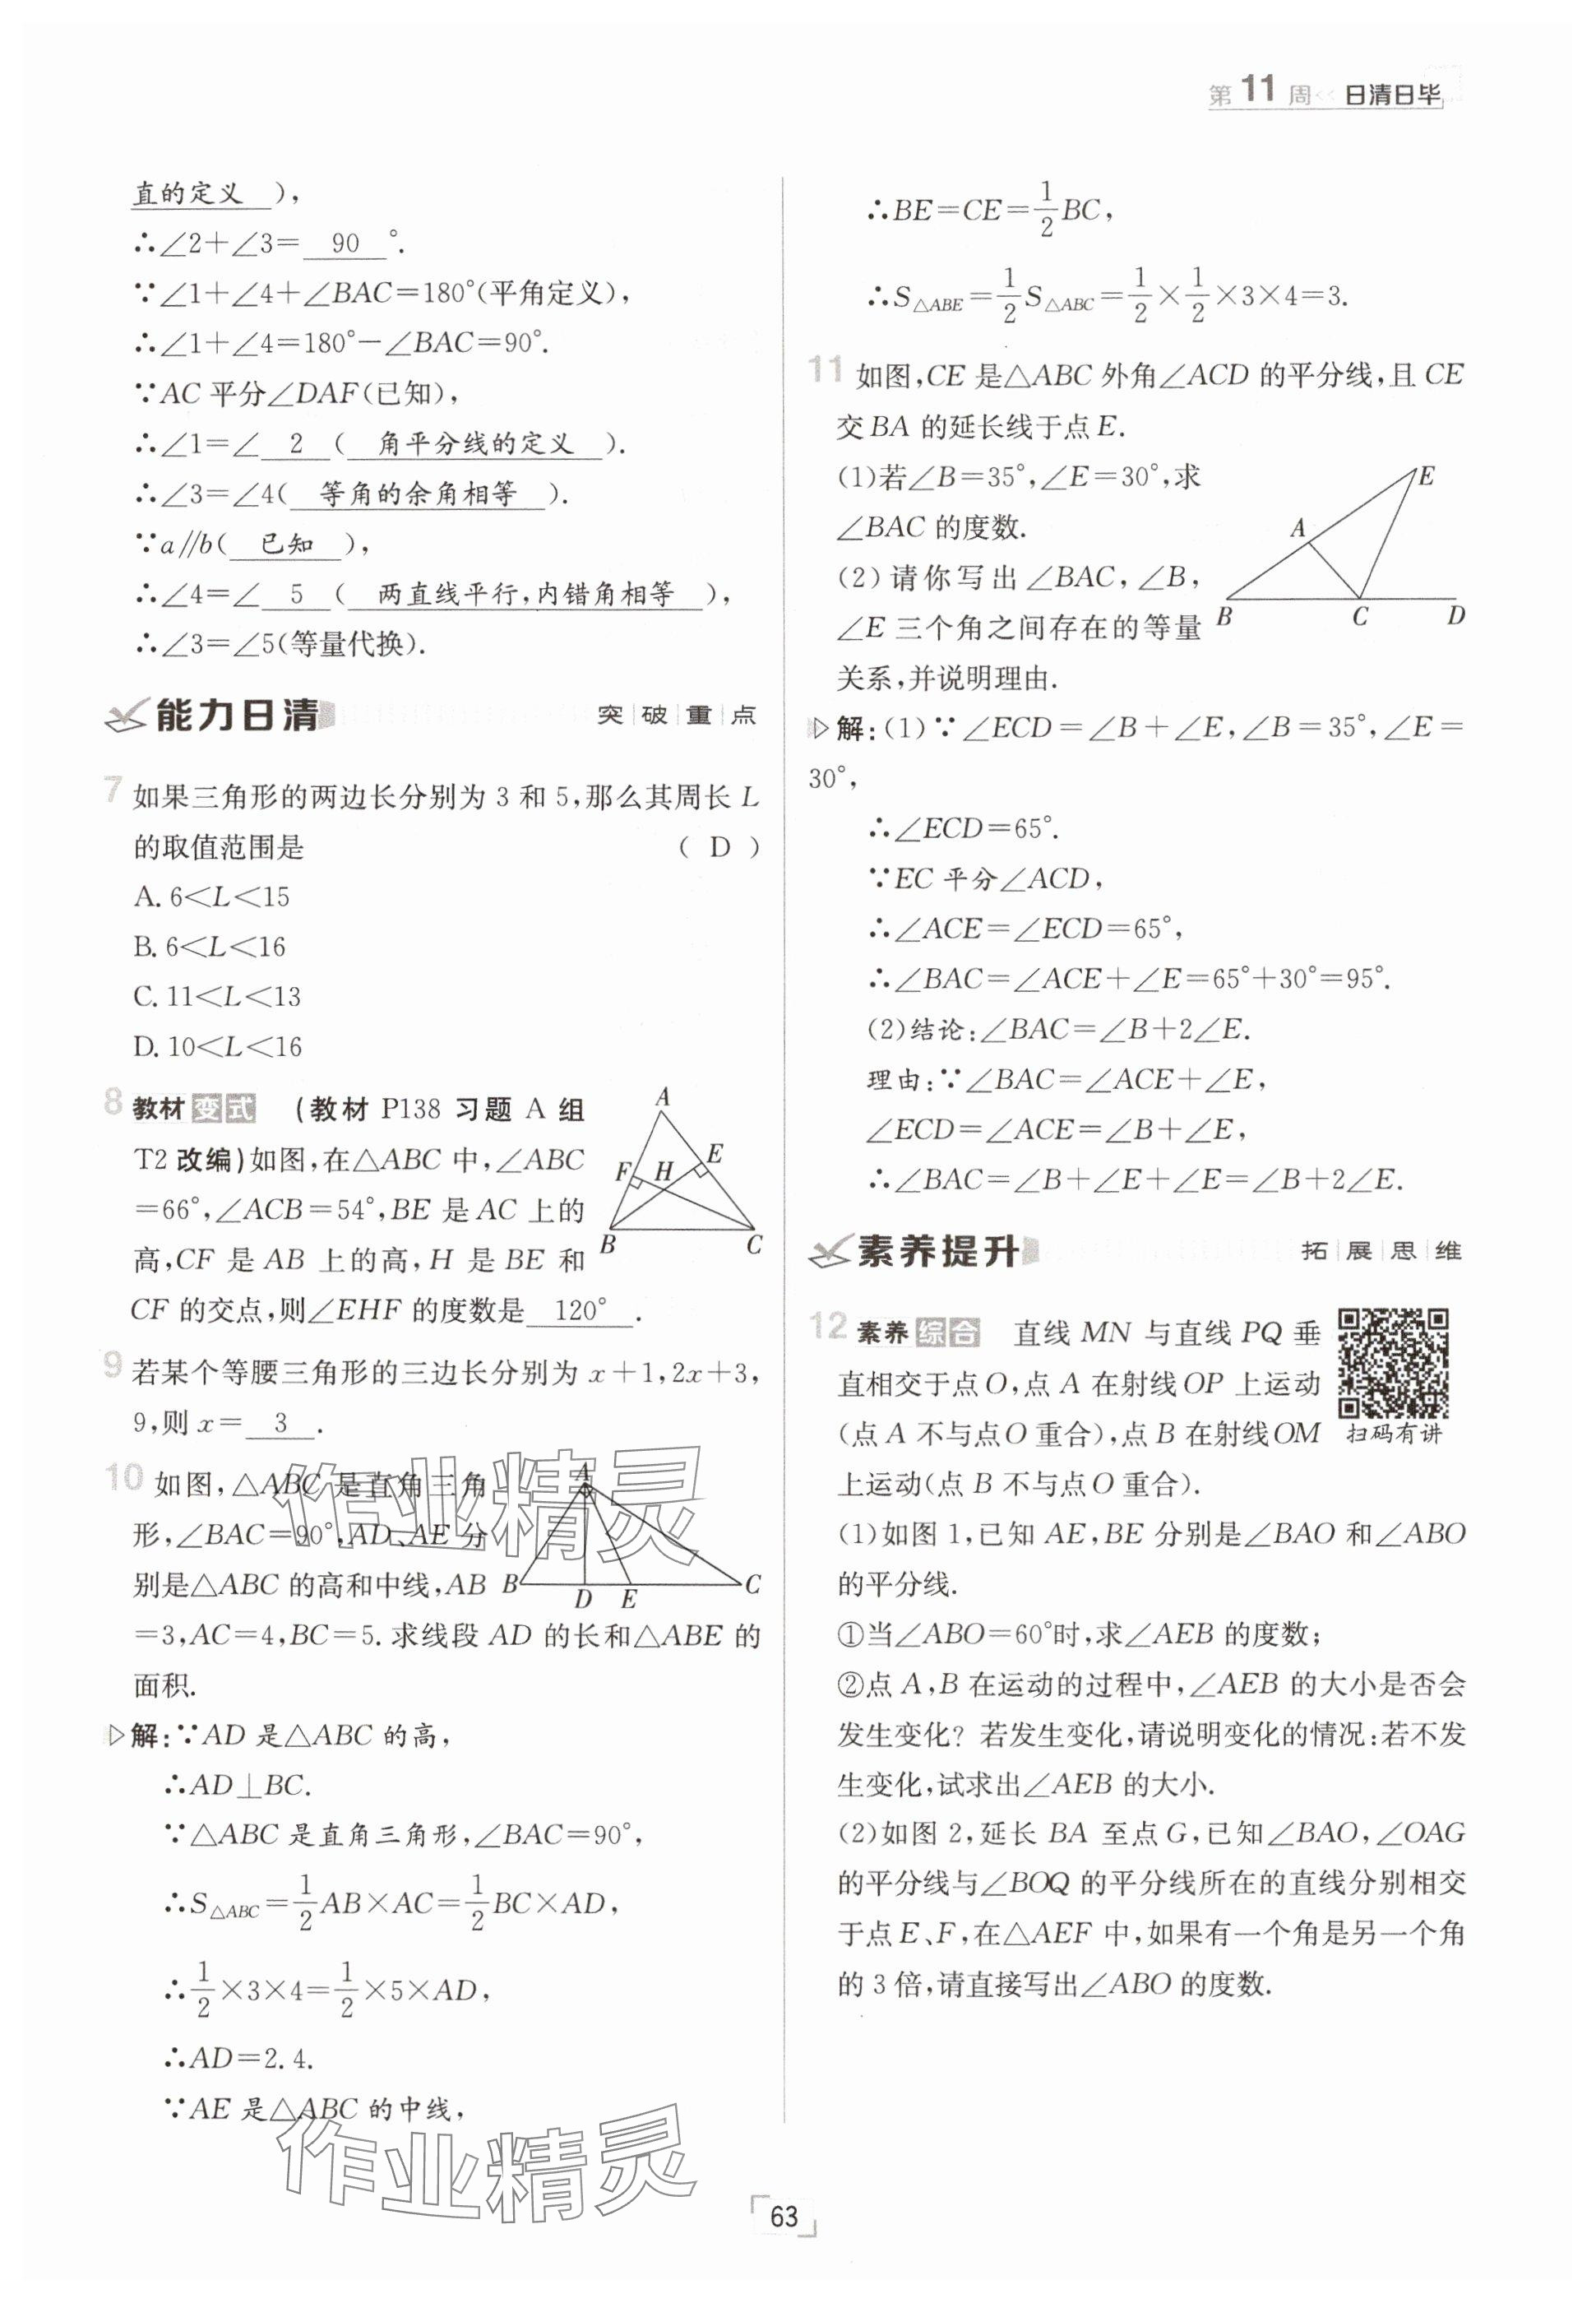 第11周<<日清日毕
直的定义),
∴∠2+∠3=90°.
∵∠1+∠4+∠BAC=180°(平角定义),
∴∠1+∠4=180°-∠BAC=90°.
∵AC平分∠DAF(已知),
∴∠1=∠2(角平分线的定义).
∴∠3=∠4(等角的余角相等).
∵a∥b(已知),
∴∠4=∠5(两直线平行,内错角相等),
∴∠3=∠5(等量代换).
能力日清 突破重点
7 如果三角形的两边长分别为3和5,那么其周长L
的取值范围是 (D)
A. 6<L<15
B. 6<L<16
C. 11<L<13
D. 10<L<16
8 教材变式 (教材P138习题A组
T2改编)如图,在△ABC中,∠ABC
=66°,∠ACB=54°,BE是AC上的
高,CF是AB上的高,H是BE和
CF的交点,则∠EHF的度数是120°.
A
E
F H
B C
9 若某个等腰三角形的三边长分别为x+1,2x+3,
9,则x=3.
10 如图,△ABC是直角三角
形,∠BAC=90°,AD、AE分
别是△ABC的高和中线,AB
=3,AC=4,BC=5.求线段AD的长和△ABE的
面积.
A
B C
D E
作业精灵
解:∵AD是△ABC的高,
∴AD⊥BC.
∵△ABC是直角三角形,∠BAC=90°,
∴S△ABC=1/2AB×AC=1/2BC×AD,
∴1/2×3×4=1/2×5×AD,
∴AD=2.4.
∵AE是△ABC的中线,
作业精灵
∴BE=CE=1/2BC,
∴S△ABE=1/2S△ABC=1/2×1/2×3×4=3.
11 如图,CE是△ABC外角∠ACD的平分线,且CE
交BA的延长线于点E.
(1)若∠B=35°,∠E=30°,求
∠BAC的度数.
(2)请你写出∠BAC,∠B,
∠E三个角之间存在的等量
关系,并说明理由.
E
A
B C D
解:(1)∵∠ECD=∠B+∠E,∠B=35°,∠E=
30°,
∴∠ECD=65°.
∵EC平分∠ACD,
∴∠ACE=∠ECD=65°,
∴∠BAC=∠ACE+∠E=65°+30°=95°.
(2)结论:∠BAC=∠B+2∠E.
理由:∵∠BAC=∠ACE+∠E,
∠ECD=∠ACE=∠B+∠E,
∴∠BAC=∠B+∠E+∠E=∠B+2∠E.
素养提升 拓展思维
12 素养综合 直线MN与直线PQ垂
直相交于点O,点A在射线OP上运动
(点A不与点O重合),点B在射线OM
上运动(点B不与点O重合).
扫码有讲
(1)如图1,已知AE,BE分别是∠BAO和∠ABO
的平分线.
①当∠ABO=60°时,求∠AEB的度数;
②点A,B在运动的过程中,∠AEB的大小是否会
发生变化?若发生变化,请说明变化的情况:若不发
生变化,试求出∠AEB的大小.
(2)如图2,延长BA至点G,已知∠BAO,∠OAG
的平分线与∠BOQ的平分线所在的直线分别相交
于点E、F,在△AEF中,如果有一个角是另一个角
的3倍,请直接写出∠ABO的度数.
63